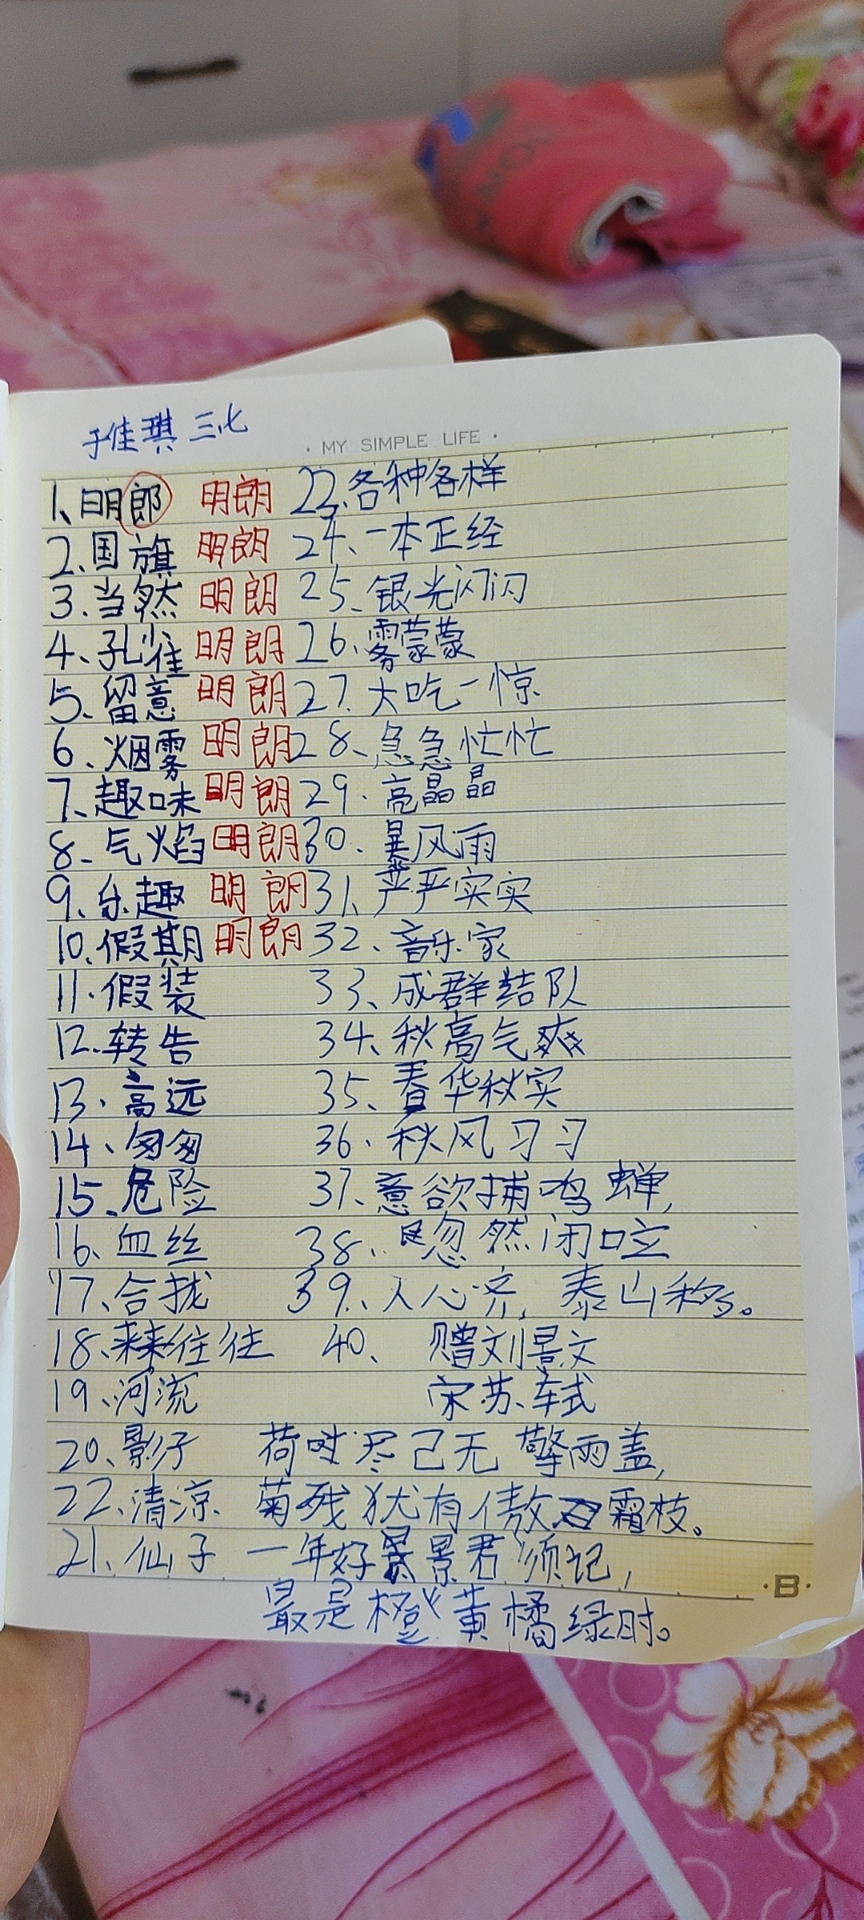 于佳琪 三.七
· MY SIMPLE LIFE ·
1、明郎 明朗 22、各种各样
2、国旗 明朗 24、一本正经
3、当然 明朗 25、银光闪闪
4、孔雀 明朗 26、雾蒙蒙
5、留意 明朗 27、大吃一惊
6、烟雾 明朗 28、急急忙忙
7、趣味 明朗 29、亮晶晶
8、气焰 明朗 30、暴风雨
9、乐趣 明朗 31、严严实实
10、假期 明朗 32、音乐家
11、假装 33、成群结队
12、转告 34、秋高气爽
13、高远 35、春华秋实
14、匆匆 36、秋风习习
15、危险 37、意欲捕鸣蝉,
16、血丝 38、忽然闭口立
17、合拢 39、人心齐,泰山移。
18、来来往往 40、赠刘景文
19、河流 宋苏轼
20、影子 荷时尽已无擎雨盖,
22、清凉 菊残犹有傲霜枝。
21、仙子 一年好景君须记,
最是橙黄橘绿时。
· B ·